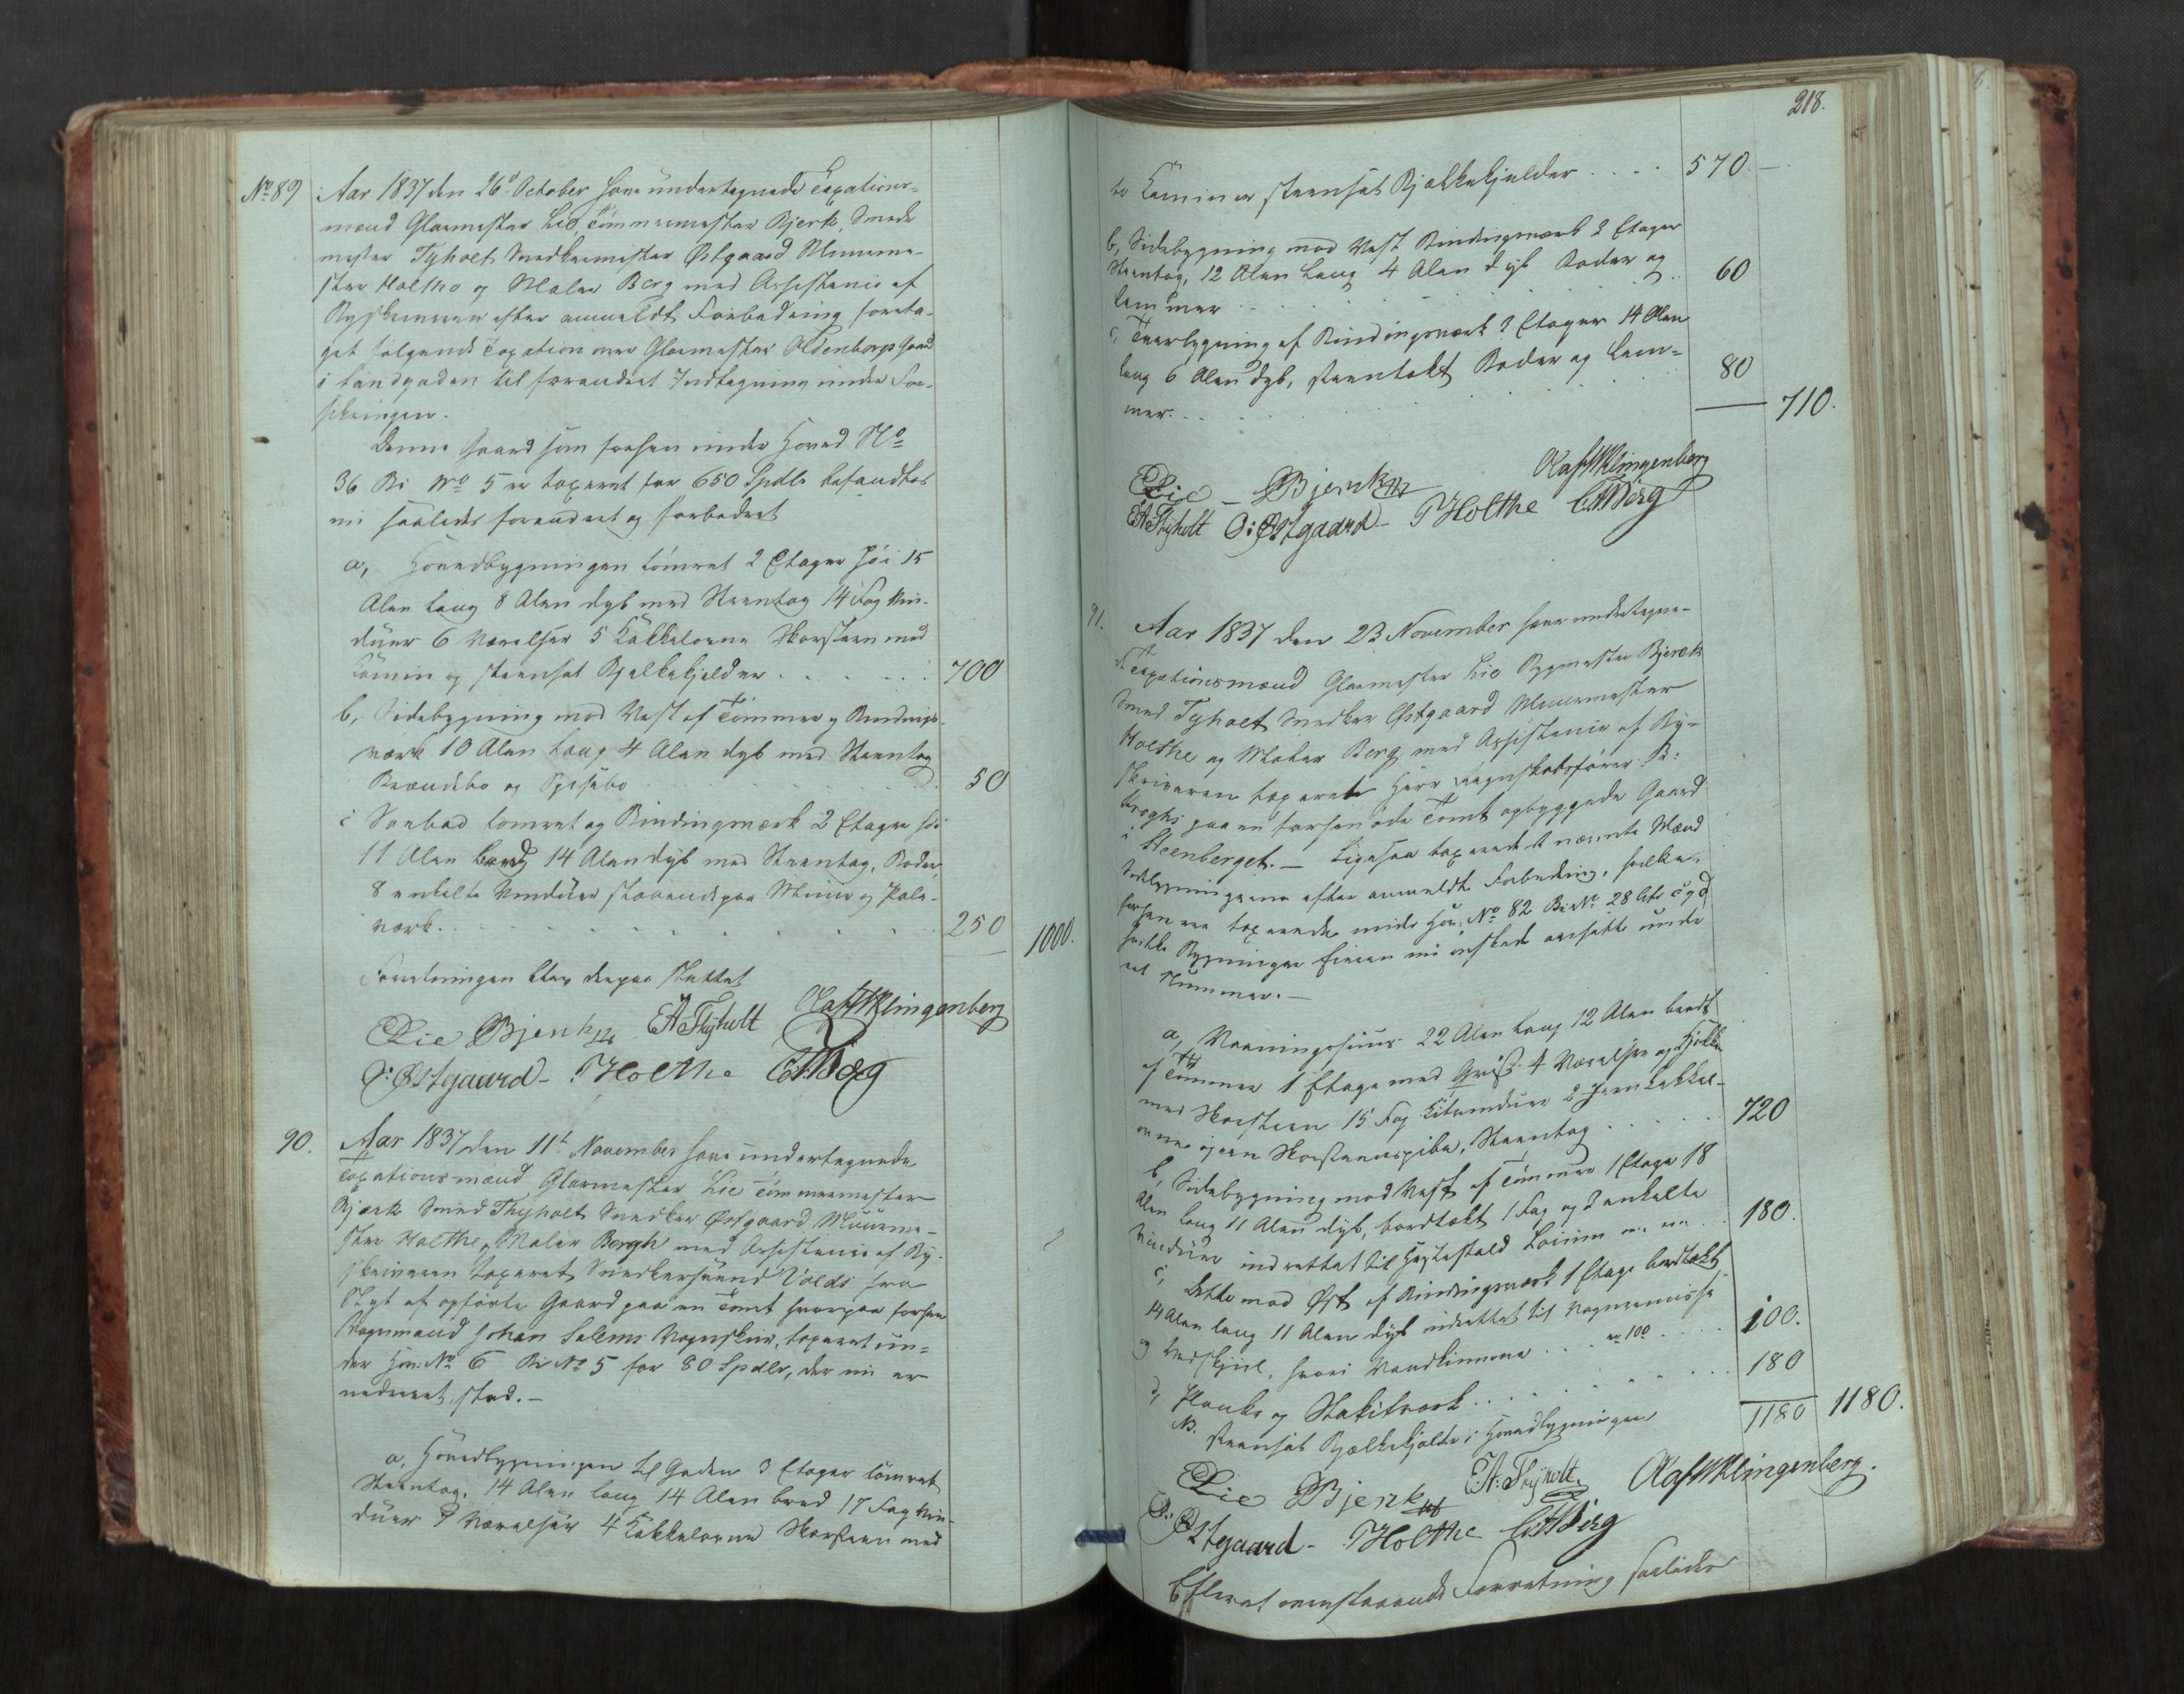 No 89
Aar 1837 den 26d October have undertegnede Taxations-
mænd Glarmester Lie, Tömmermester Bjerk, Smede
mester Tyholt Snedkermester Østgaard Muurme-
ster Holthe og Maler Berg med Assistence af
Byskriveren efter anmeldt Forbedring foreta-
get følgende Taxation over Glarmester Oldenborgs Gaard
i Sandgaden til forandret Indtegning under For-
sikringen.
Denne Gaard som forhen under Hoved No
36 Bi No 5 er taxeret for 650 Spdlr befandtes
nu saaledes forandret og forbedret
a, Hovedbygningen tömret 2 Etager höi 15
Alen lang 8 Alen dyb med Steentag 14 Fag Vin-
duer 6 Værelser 5 Kakkelovne Skorsteen med
Kamin og steensat Bjelkekjelder 700
b, Sidebygning mod Vest af Tömmer og Bindings-
værk 10 Alen lang 4 Alen dyb med Steentag
Brændebo og 50
c Søebod tømret og Bindingsværk 2 Etager höi
11 Alen bred 14 Alen dyb med Steentag, Boder,
8 enkelte Vinduer staaende paa Muur og Pæle-
værk. 250 1000.
Forretningen blev derpaa sluttet
Lie Bjerk EA Thyholt Olaf W Klingenberg
O: Østgaard- J Holthe CM Berg
90. Aar 1837 den 11t November have undertegnede
Taxationsmænd Glarmester Lie Tömmermester
Bjerk Smed Thyholt Snedker Østgaard Muurme-
ster Holthe, Maler Bergh med Assistence af By-
skriveren taxeret Snedkersvend Volds fra
Nyt af opførte Gaard paa en Tomt hvorpaa forhen
Vognmand Johan Salems Vognskuur, taxeret un-
der Hov: No 6 Bi No 5 for 80 Spdlr, der nu er
nedrevet, stod.-
a, Hovedbygningen til Gaden 3 Etager tömret
Steentag, 14 Alen lang 14 Alen bred 17 Fag Vin-
duer 9 Værelser 4 Kakkelovne Skorsteen med
218.
to Kaminer steensat Bjælkekjelder 570 -
b, Sidebygning mod Vest Bindingsværk 2 Etager
Steentag, 12 Alen lang 4 Alen dyb Boder og
Kammer 60
c, Tverbygning af Bindingsværk 2 Etager 14 Alen
lang 6 Alen dyb, steentækt Boder og Kam-
mer. 80
710.
Lie - Bjerk Olaf W Klingenberg
EA Thyholt O: Østgaard- J Holthe CM Berg
91. Aar 1837 den 23 November have undertegne-
de Taxationsmænd Glarmester Lie Bygmester Bjerck
Smed Tyholt Snedker Østgaard Muurmester
Holthe og Maler Berg med Assistence af By-
skriveren taxeret Herr Regnskabsfører B:
Kroghs paa en forhen øde Tomt opbyggede Gaard
i Steenberget.- Ligesaa taxerede nævnte Mænd
Sidebygningerne efter anmeldt Forbedring, hvilke
forhen ere taxerede under Hov: No 82 Bi No 28 Litr c og d
hvilke Bygninger Eieren nu ønskede ansatte under
eet Nummer.-
a, Vaaningshuus 22 Alen lang 12 Alen bredt
af Tömmer 1 Etage med Qvist 4 Værelser og Kjøkken
med Skorsteen 15 Fag Vinduer 2 Jern Kakkel-
ovne og een Skorsteenspibe, Steentag 720
b, Sidebygning mod Vest af Tömmer 1 Etage 18
Alen lang 11 Alen dyb, bordtækt 1 Fag og 2 enkelte
Vinduer indrettet til Hestestald 180.
c, Dette mod Øst af Bindingsværk 1 Etage bordtækt
14 Alen lang 11 Alen dyb indrettet til Vognremisse
og Vedskjul, hvori Vandkummene er 100 100.
d, Planke og Stakitværk 180
NB. steensat Bjælkekjelder i Hovedbygningen 1180 1180.
Lie Bjerk EA: Thyholt. Olaf W Klingenberg.
O: Østgaard- J Holthe CM Berg
Efterat ovenstaaende Forretning saaledes